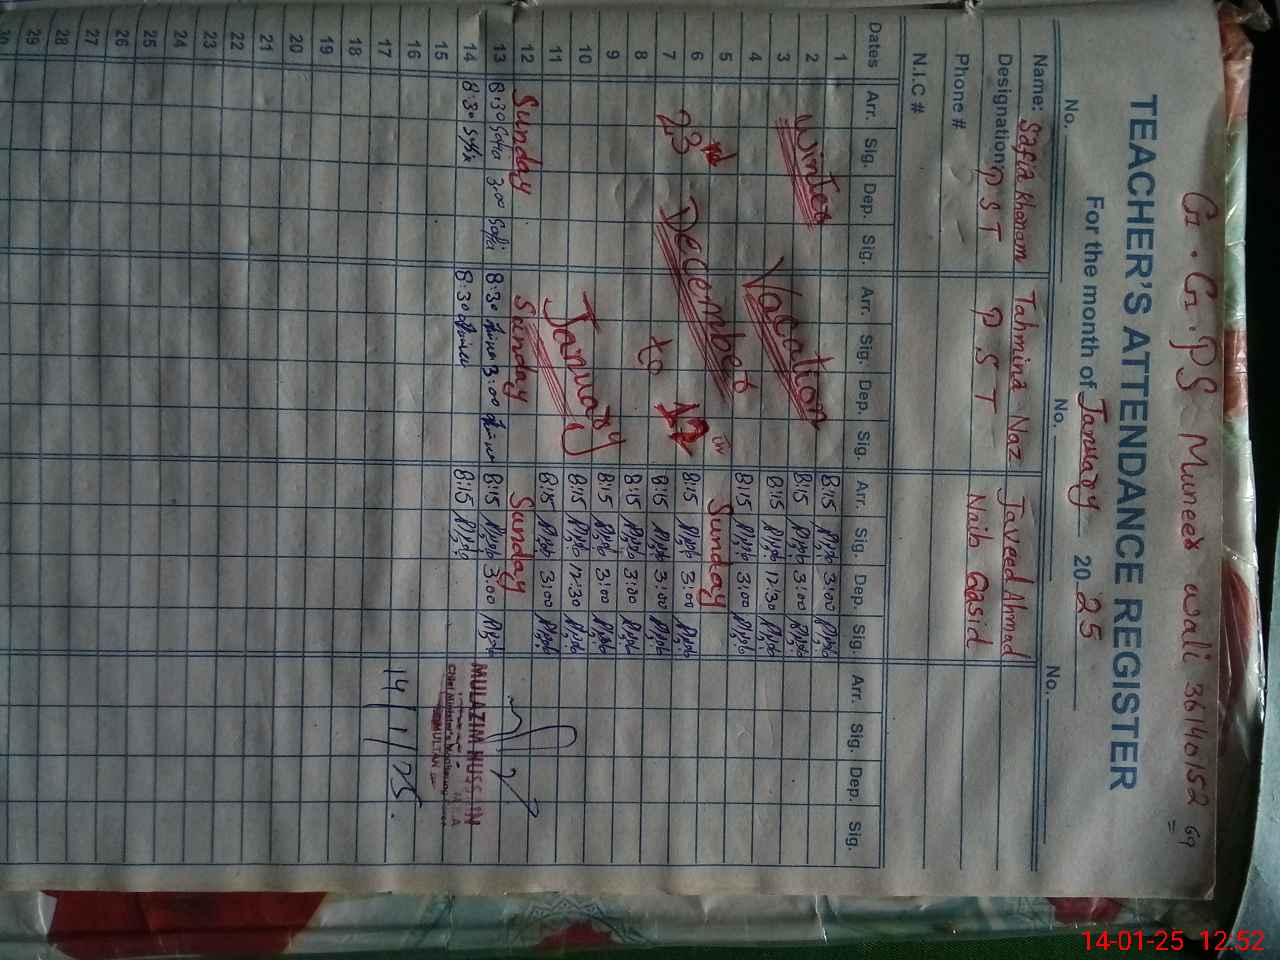 G.G.PS Muneer wali 36140152
TEACHER'S ATTENDANCE REGISTER
For the month of January 2025
No. No. No.
Name: Safia Khanam Tahmina Naz Javeed Ahmad
Designation: P S T P S T Naib Qasid
Phone #
N.I.C #
Dates Arr. Sig. Dep. Sig. Arr. Sig. Dep. Sig. Arr. Sig. Dep. Sig. Arr. Sig. Dep. Sig.
Winter Vacation
23rd December to 12 January
1 8:15 3:00
2 8:15 3:00
3 8:15 12:30
4 8:15 3:00
5 Sunday
6 8:15 3:00
7 8:15 3:00
8 8:15 3:00
9 8:15 3:00
10 8:15 12:30
11 8:15 3:00
12 Sunday Sunday Sunday
13 8:30 Safia 3:00 Safi 8:30 3:00 8:15 3:00
14 8:30 8:30 8:15
15
16
17
18
19
20
21
22
23
24
25
26
27
28
29
30
MULAZIM HUSSAIN
MULTAN
14/1/25
14-01-25 12:52